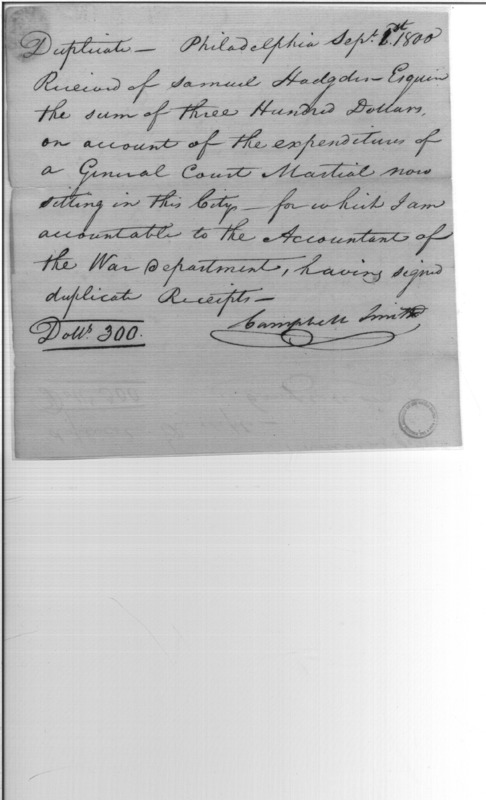 Duplicate — Philadelphia Sept. 1st 1800
Received of Samuel Hodgdon Esquire
the sum of three Hundred Dollars,
on account of the expenditures of
a General Court Martial now
sitting in this City — for which I am
accountable to the Accountant of
the War department, having signed
duplicate Receipts —
Dolls. 300.
Campbell Smith